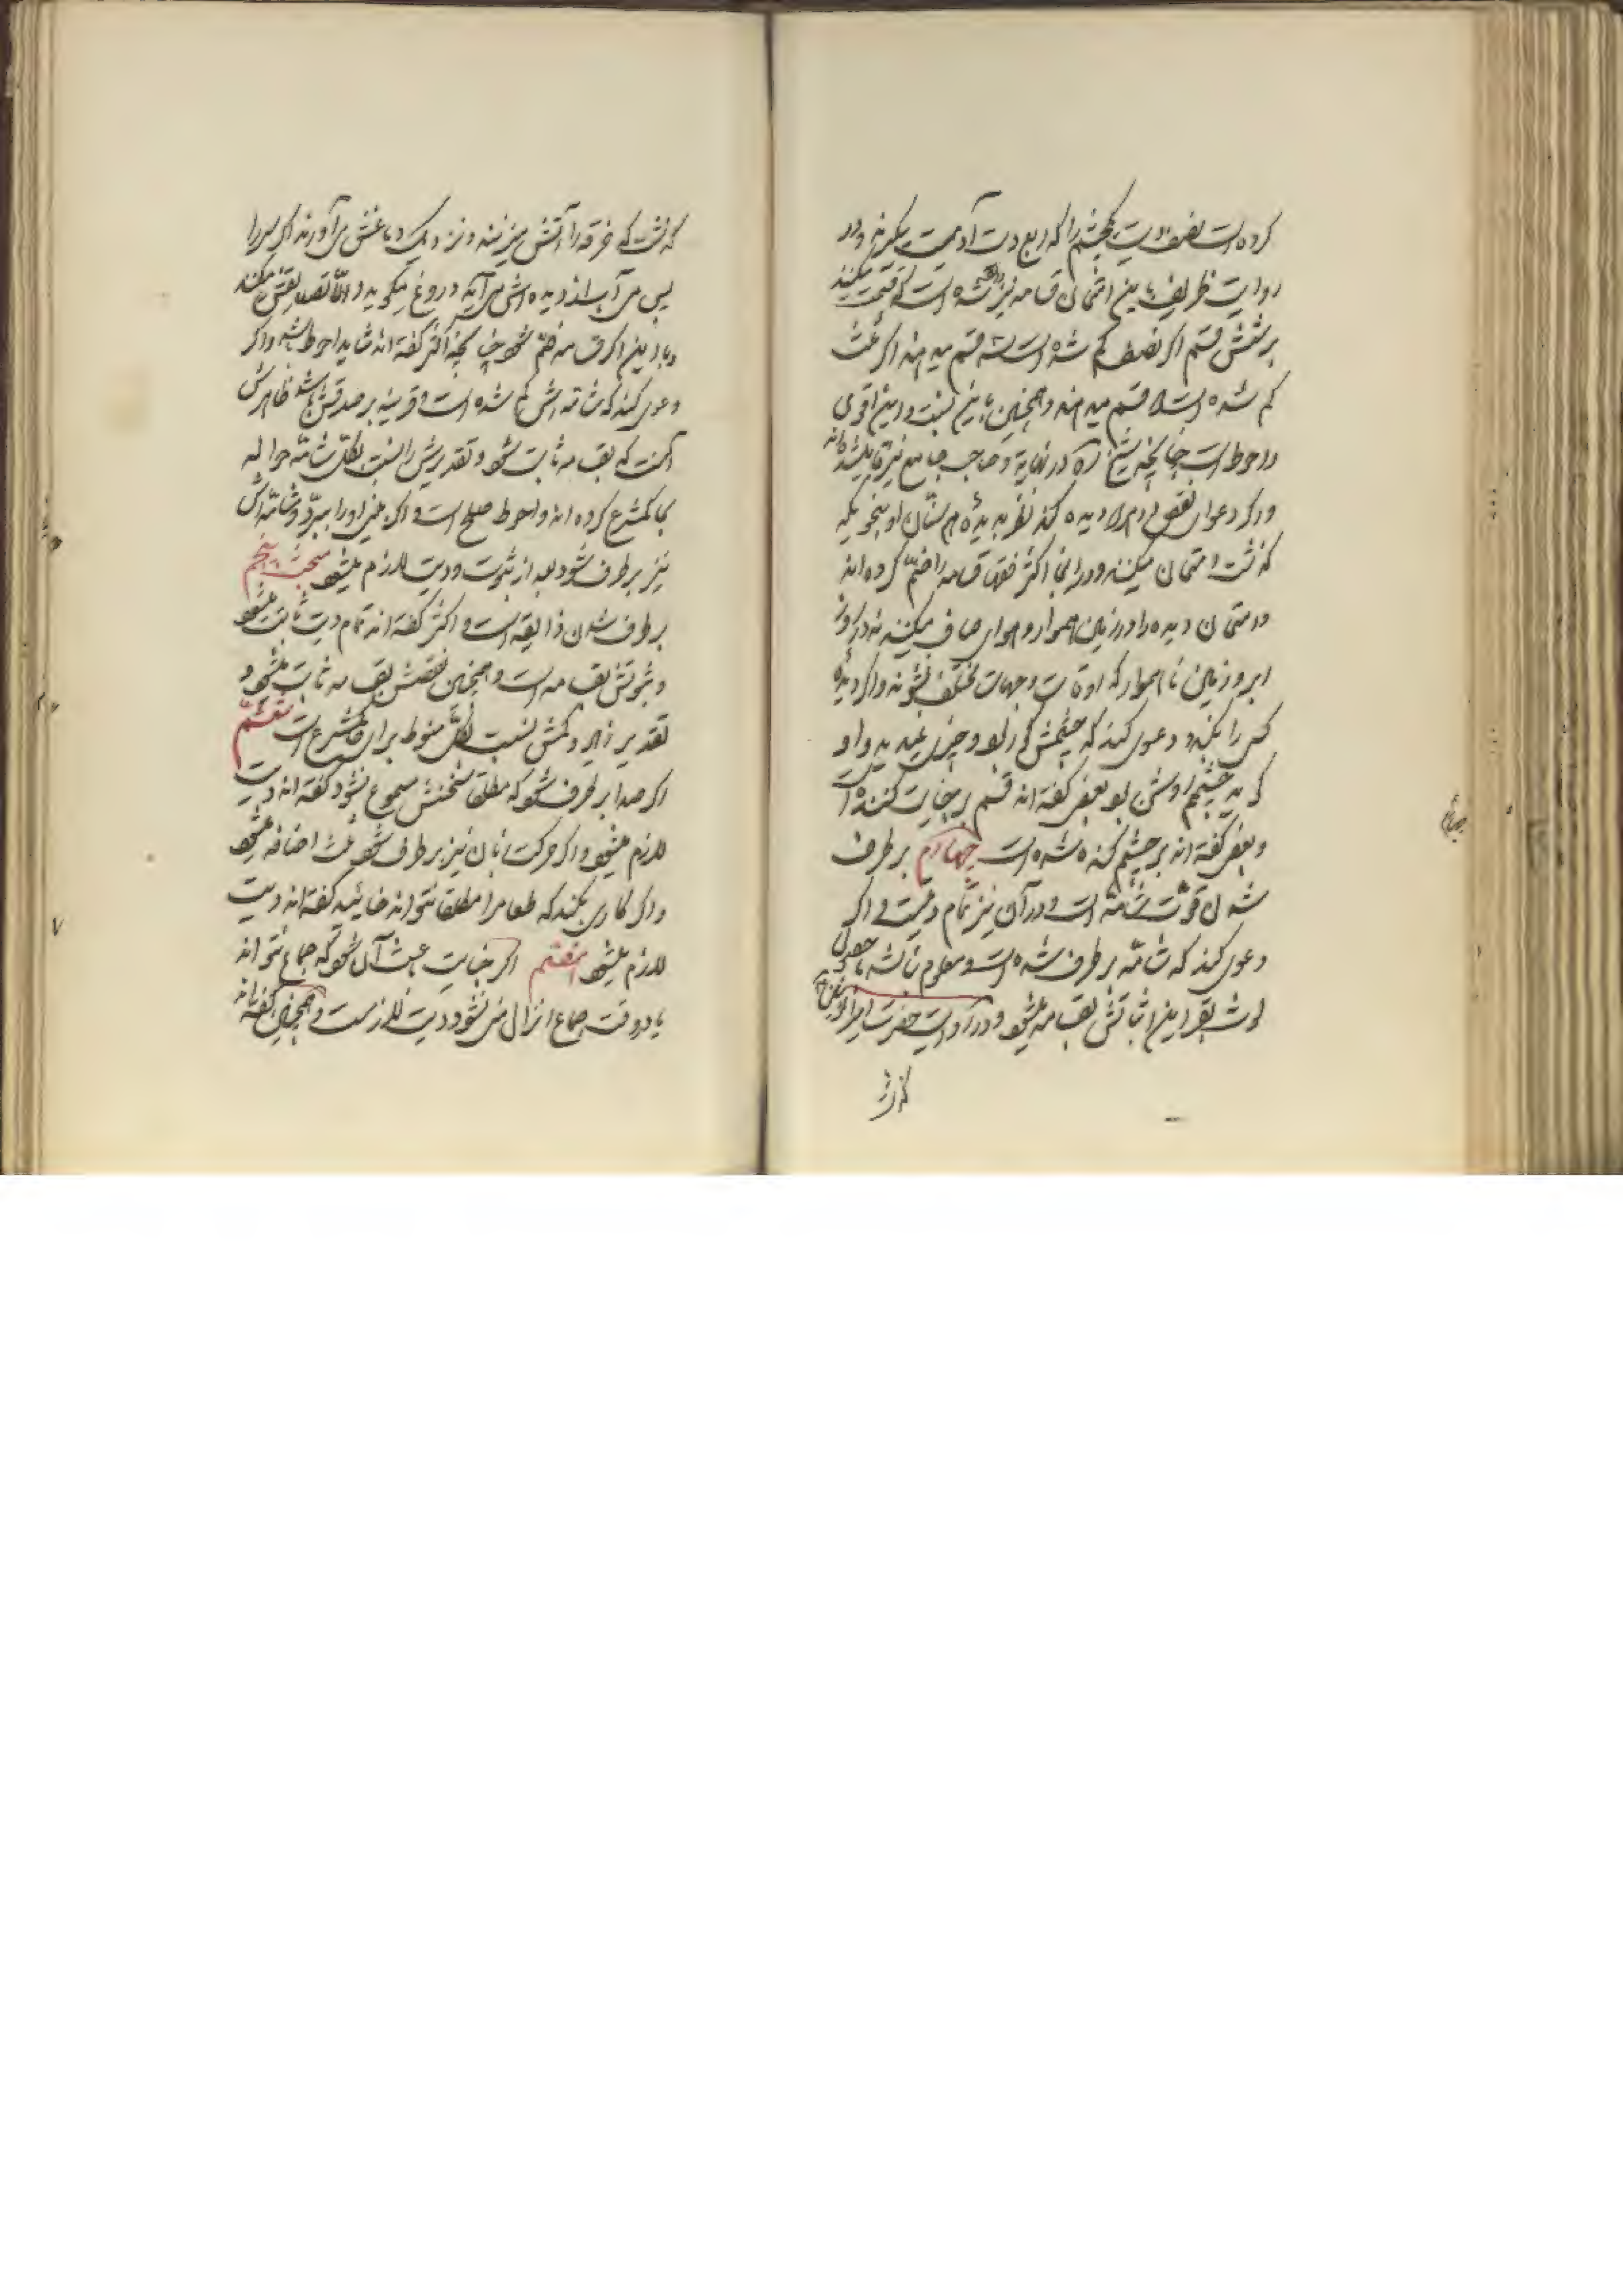 کرده است نصف دیت یکچشم را که ربع دیت آدمیست میگیرند و در
روایت ظریف باین امتحان قسامه نیز واقع شده است که قسمت میکنند
بر شش قسم اگر نصف کم شده است سه قسم میدهند اگر ثلث
کم شده است دو قسم میدهند و همچنین باین نسبت و این اقوی
و احوط است چنانچه شیخ ره در نهایة و صاحب جامع نیز قایل شده‌اند
و اگر دعوای نقص هر دو دیده کند نظر بدیده همسنّان او بنحویکه
گذشت امتحان میکنند و در اینجا اکثر فقها قسامه را ضمّ کرده‌اند
و امتحان دیده را در زمین هموار و هوای صاف میکنند نه در روز
ابر و زمین ناهموار که اوقات و جهات مختلف نشوند و اگر دیدهٔ
کسی را بکند و دعوی کند که چشمش کور بود و چیزی نمیدید و او
گوید چشمم روشن بود بعضی گفته‌اند قسم بر جنایت کننده است
و بعضی گفته‌اند بر چشم کنده شده است چهارم بر طرف
شدن قوّت شامّه است و در آن نیز تمام دیتست و اگر
دعوی کند که شامّه بر طرف شده است و معلوم نباشد با حصول
لوث بقراین اثباتش بقسامه میشود و در روایت حضرت امیرالمؤمنین
گذشت
گذشت که خرقه را آتش میزنند و نزدیک دماغش می‌آورند اگر سر را
پس می‌برد و آب از دیده‌اش می‌آید دروغ میگوید و الّا تصدیقش میکنند
و با این اگر قسامه ضمّ شود چنانچه اکثر گفته‌اند شاید احوط باشد و اگر
دعوی کند که شامّه‌اش کم شده است و قرینه بر صدقش باشد ظاهرش
آنست که بقسامه ثابت شود و تقدیرش را نسبت بکلّ شامّه حواله
بحاکم شرع کرده‌اند و احوط صلح است و اگر بینی او را ببرّد و شامّه‌اش
نیز بر طرف شود بعد از ثبوت دو دیت لازم میشود مبحث پنجم
بر طرف شدن ذایقه است و اکثر گفته‌اند تمام دیت ثابت میشود
و ثبوتش بقسامه است و همچنین نقصش بقسامه ثابت میشود و
تقدیر زیاد و کمش نسبت بکلّ منوط برای حاکم شرع است ششم
اگر صدا بر طرف شود که مطلقا سخنش مسموع نشود گفته‌اند دیت
لازم میشود و اگر حرکت زبان نیز بر طرف شود ثلث اضافه میشود
و اگر کاری بکند که طعام را مطلقا نتواند خائید گفته‌اند دیت
لازم میشود هفتم اگر جنایت باعث آن شود که جماع نتواند
یا در وقت جماع انزال منی نشود دیت لازمست و همچنین گفته‌اند